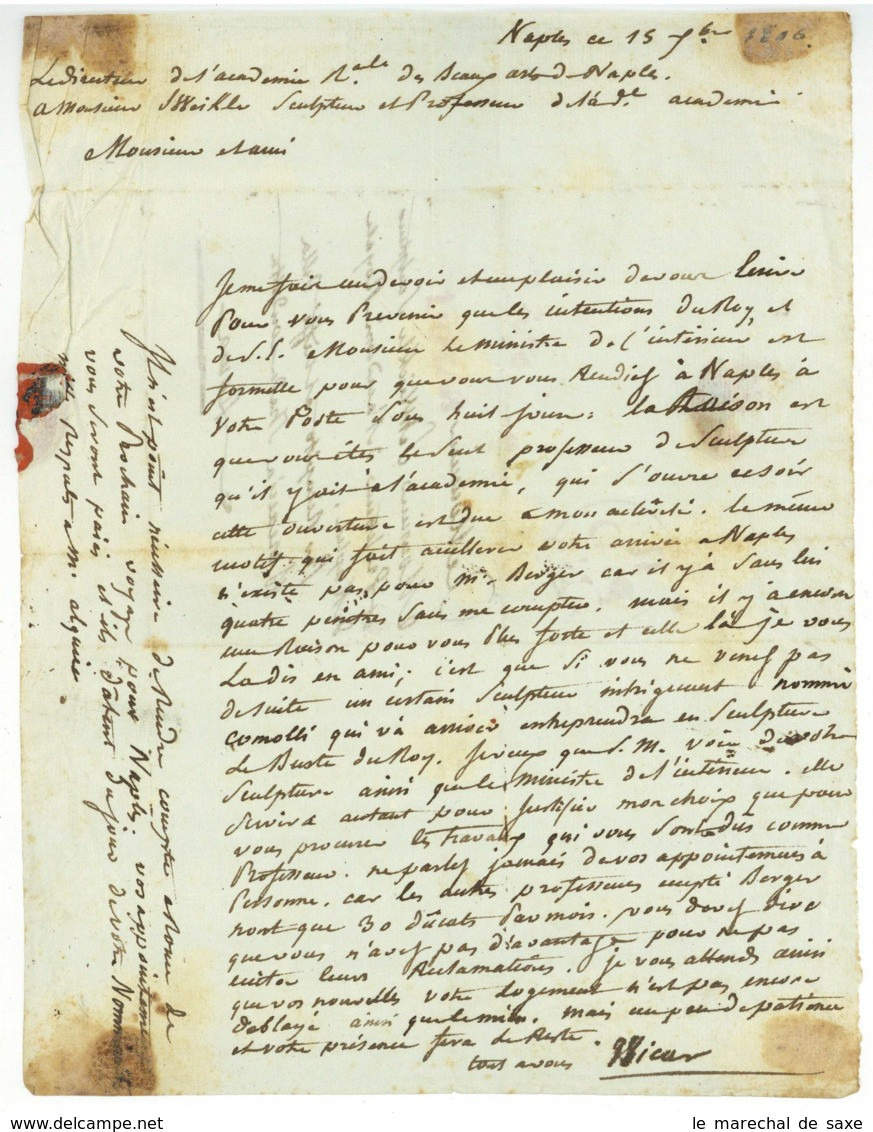 Naples ce 15 7bre 1806.
Le directeur de l'academie R.ale des Beaux arts de Naples.
a Monsieur Sculpteur et Professeur de la d.e academie
Monsieur et ami
Je me fais un devoir et un plaisir de vous
Pour vous Prevenir que les intentions du Roy et
de S. E. Monsieur le ministre de l'interieur est
formelle pour que vous vous Rendiez à Naples à
votre Poste sous huit jours: la Raison est
que vous êtes le seul professeur de Sculpture
qu'il y ait à l'academie, qui s'ouvre ce soir
cette ouverture est due a mon activité. le même
motif qui fait accellerer votre arrivée a Naples
n'existe pas pour Mr. Berger car il y à sans lui
quatre peintres sans me compter. mais il y à encore
une Raison pour vous Plus forte et celle là je vous
La dis en ami; c'est que si vous ne venez pas
de suite un certain Sculpteur intrigement nommé
Comolli qui và arriver entreprendra en Sculpture
Le Buste du Roy. Je veux que S. M. voie de votre
Sculpture ainsi que le ministre de l'interieur. elle
servira autant pour Justifier mon choix que pour
vous procurer les travaux qui vous sont dûs comme
Professeur. ne parlez jamais de vos appointemens à
Personne, car les autres professeurs excepté Berger
n'ont que 30 dûcats Par mois. vous devez dire
que vous n'avez pas d'avantage pour ne pas
exiter leurs Reclamations. Je vous attends ainsi
que vos nouvelles votre Logement n'est pas encore
deblayé ainsi que le mien. mais un peu de patience
et votre présence fera le Reste.
tout a vous Wicar
Il n'est point nécessaire de Rendre compte a Rome de
votre Prochain voyage pour Naples. vos appointemens
vous seront païés et ils dâtent du jour de votre Nomination
mille Respects a Mr. alquier.
le marechal de saxe